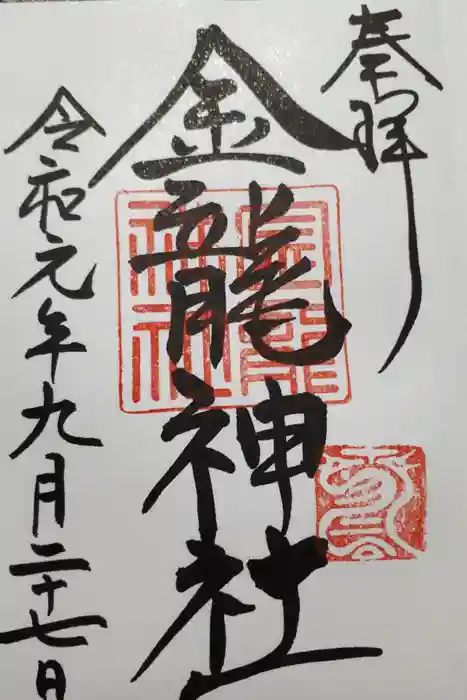 奉拝
金龍神社
金龍
神社
令和元年九月二十七日